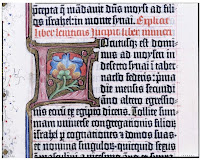 cepta q̄ mādauit dn̄s moysi ad fili
os israhel: in monte synai. Explicit
liber leuiticus Incipit liber numeri
Locutusq; ē do
min⁹ ad moysen in
deserto synai ī taber
naclo federis: p̄ma
die mensis secundi
āno altero egressio
nis eoꝝ ex egipto dicens. Tollite sum
mam uniuerse congregationis filioꝝ
israhel p cognationes ⁊ domos suas
et nomina singuloꝝ: quicquid sexus